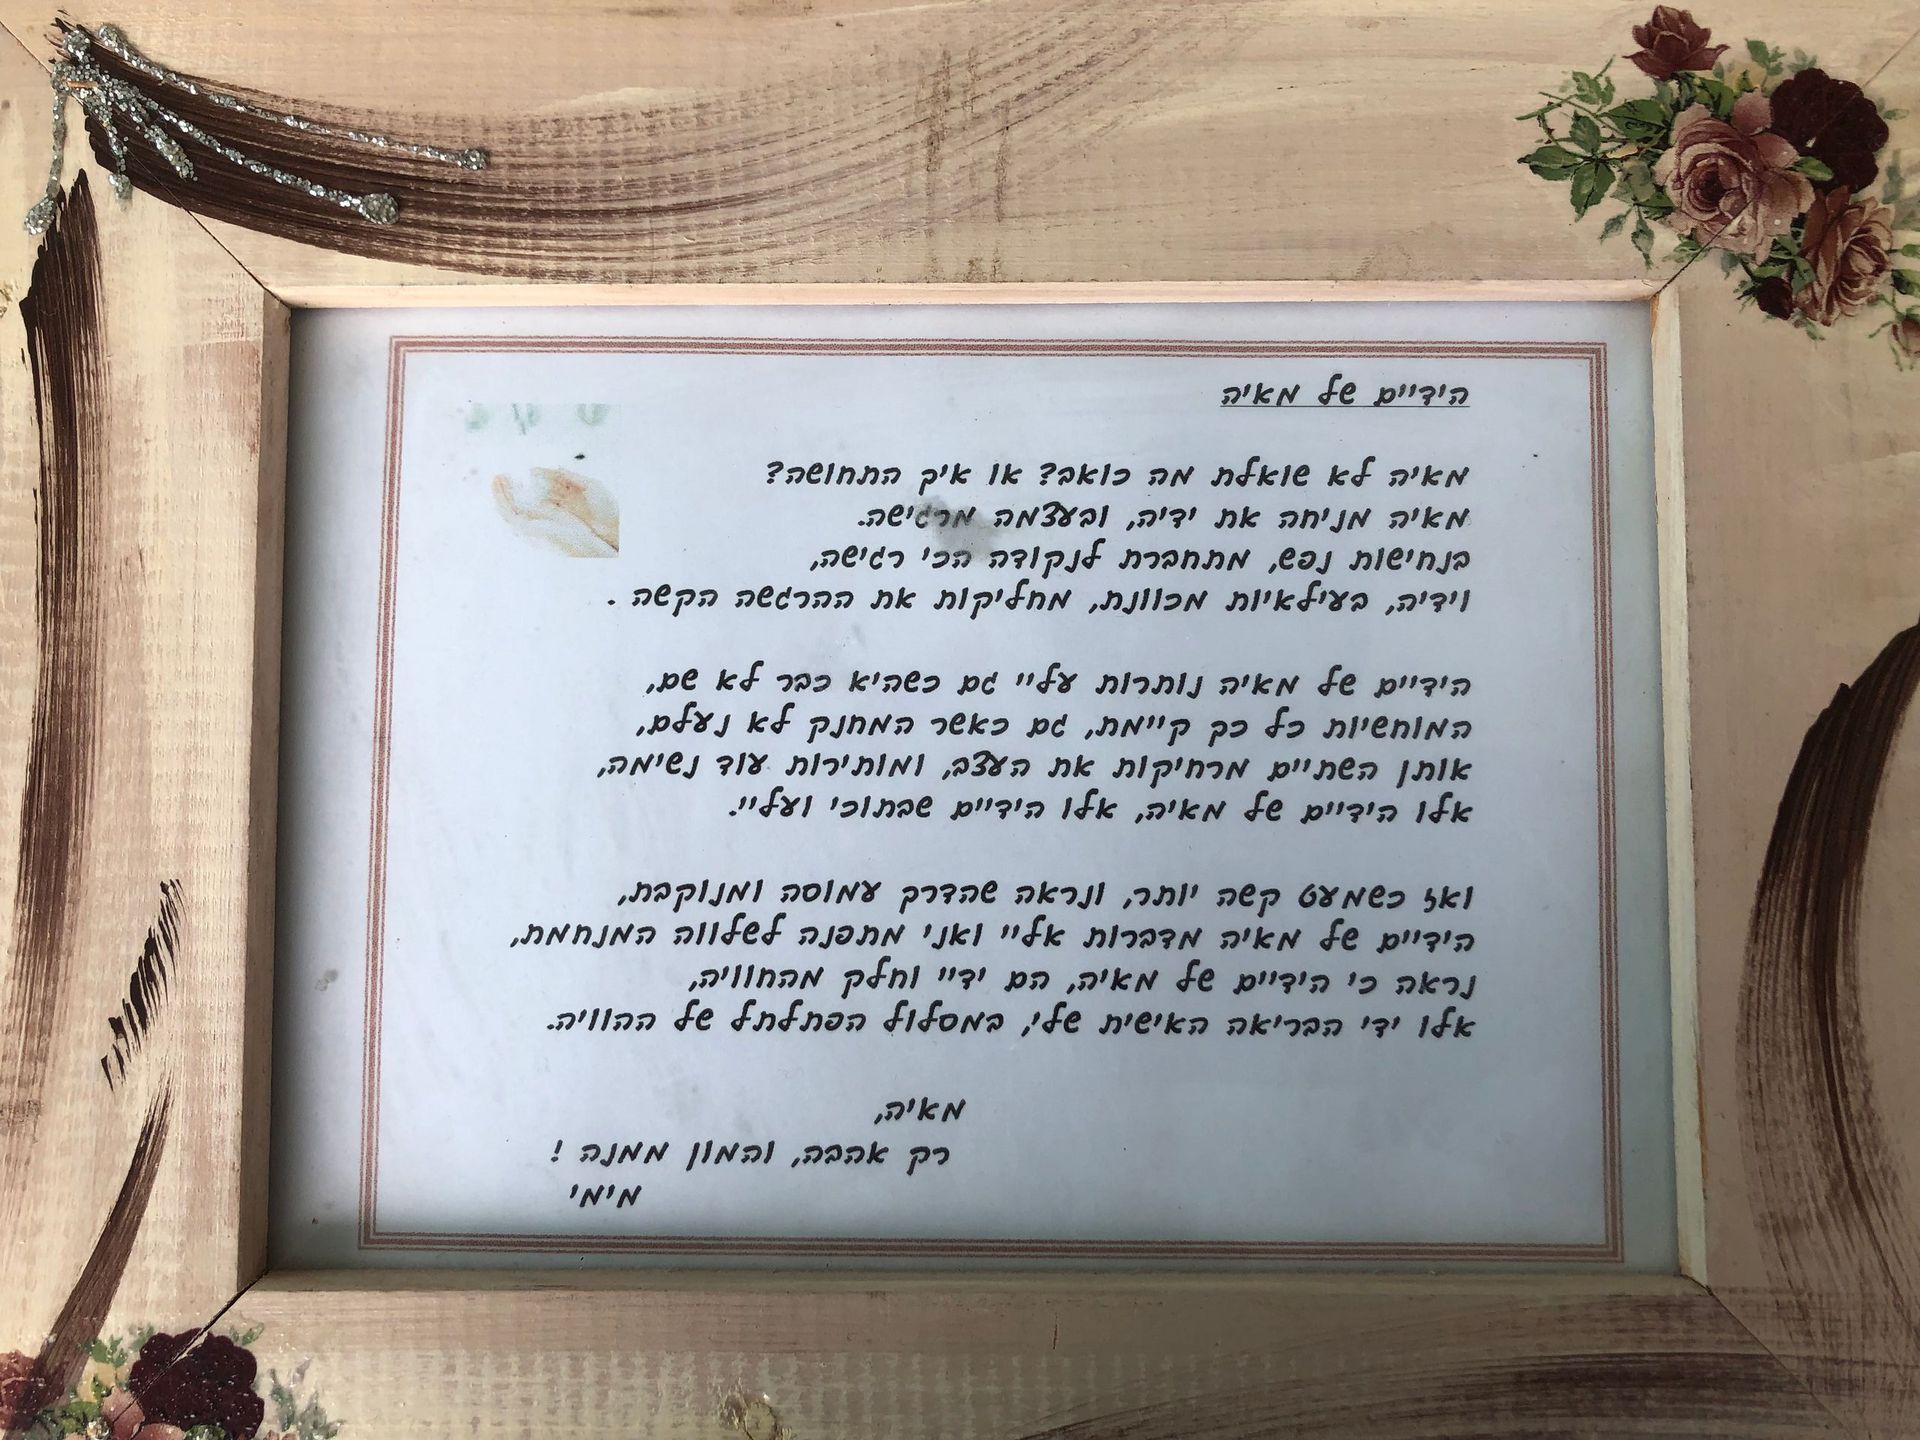 הידיים של מאיה
מאיה לא שואלת מה כואב? או איך התחושה?
מאיה מניחה את ידיה, ובעצמה מרגישה.
בנחישות נפש, מתחברת לנקודה הכי רגישה,
וידיה, בעילאיות מכוונת, מחליקות את ההרגשה הקשה .
הידיים של מאיה נותרות עליי גם כשהיא כבר לא שם,
המוחשיות כל כך קיימת, גם כאשר המחנק לא נעלם,
אותן השתיים מרחיקות את העצב, ומותירות עוד נשימה,
אלו הידיים של מאיה, אלו הידיים שבתוכי ועליי.
ואז כשמעט קשה יותר, ונראה שהדרך עמוסה ומנוקבת,
הידיים של מאיה מדברות אליי ואני מתפנה לשלווה המנחמת,
נראה כי הידיים של מאיה, הם ידיי וחלק מהחוויה,
אלו ידי הבריאה האישית שלי, במסלול הפתלתל של ההוויה.
מאיה,
רק אהבה, והמון ממנה !
מימי